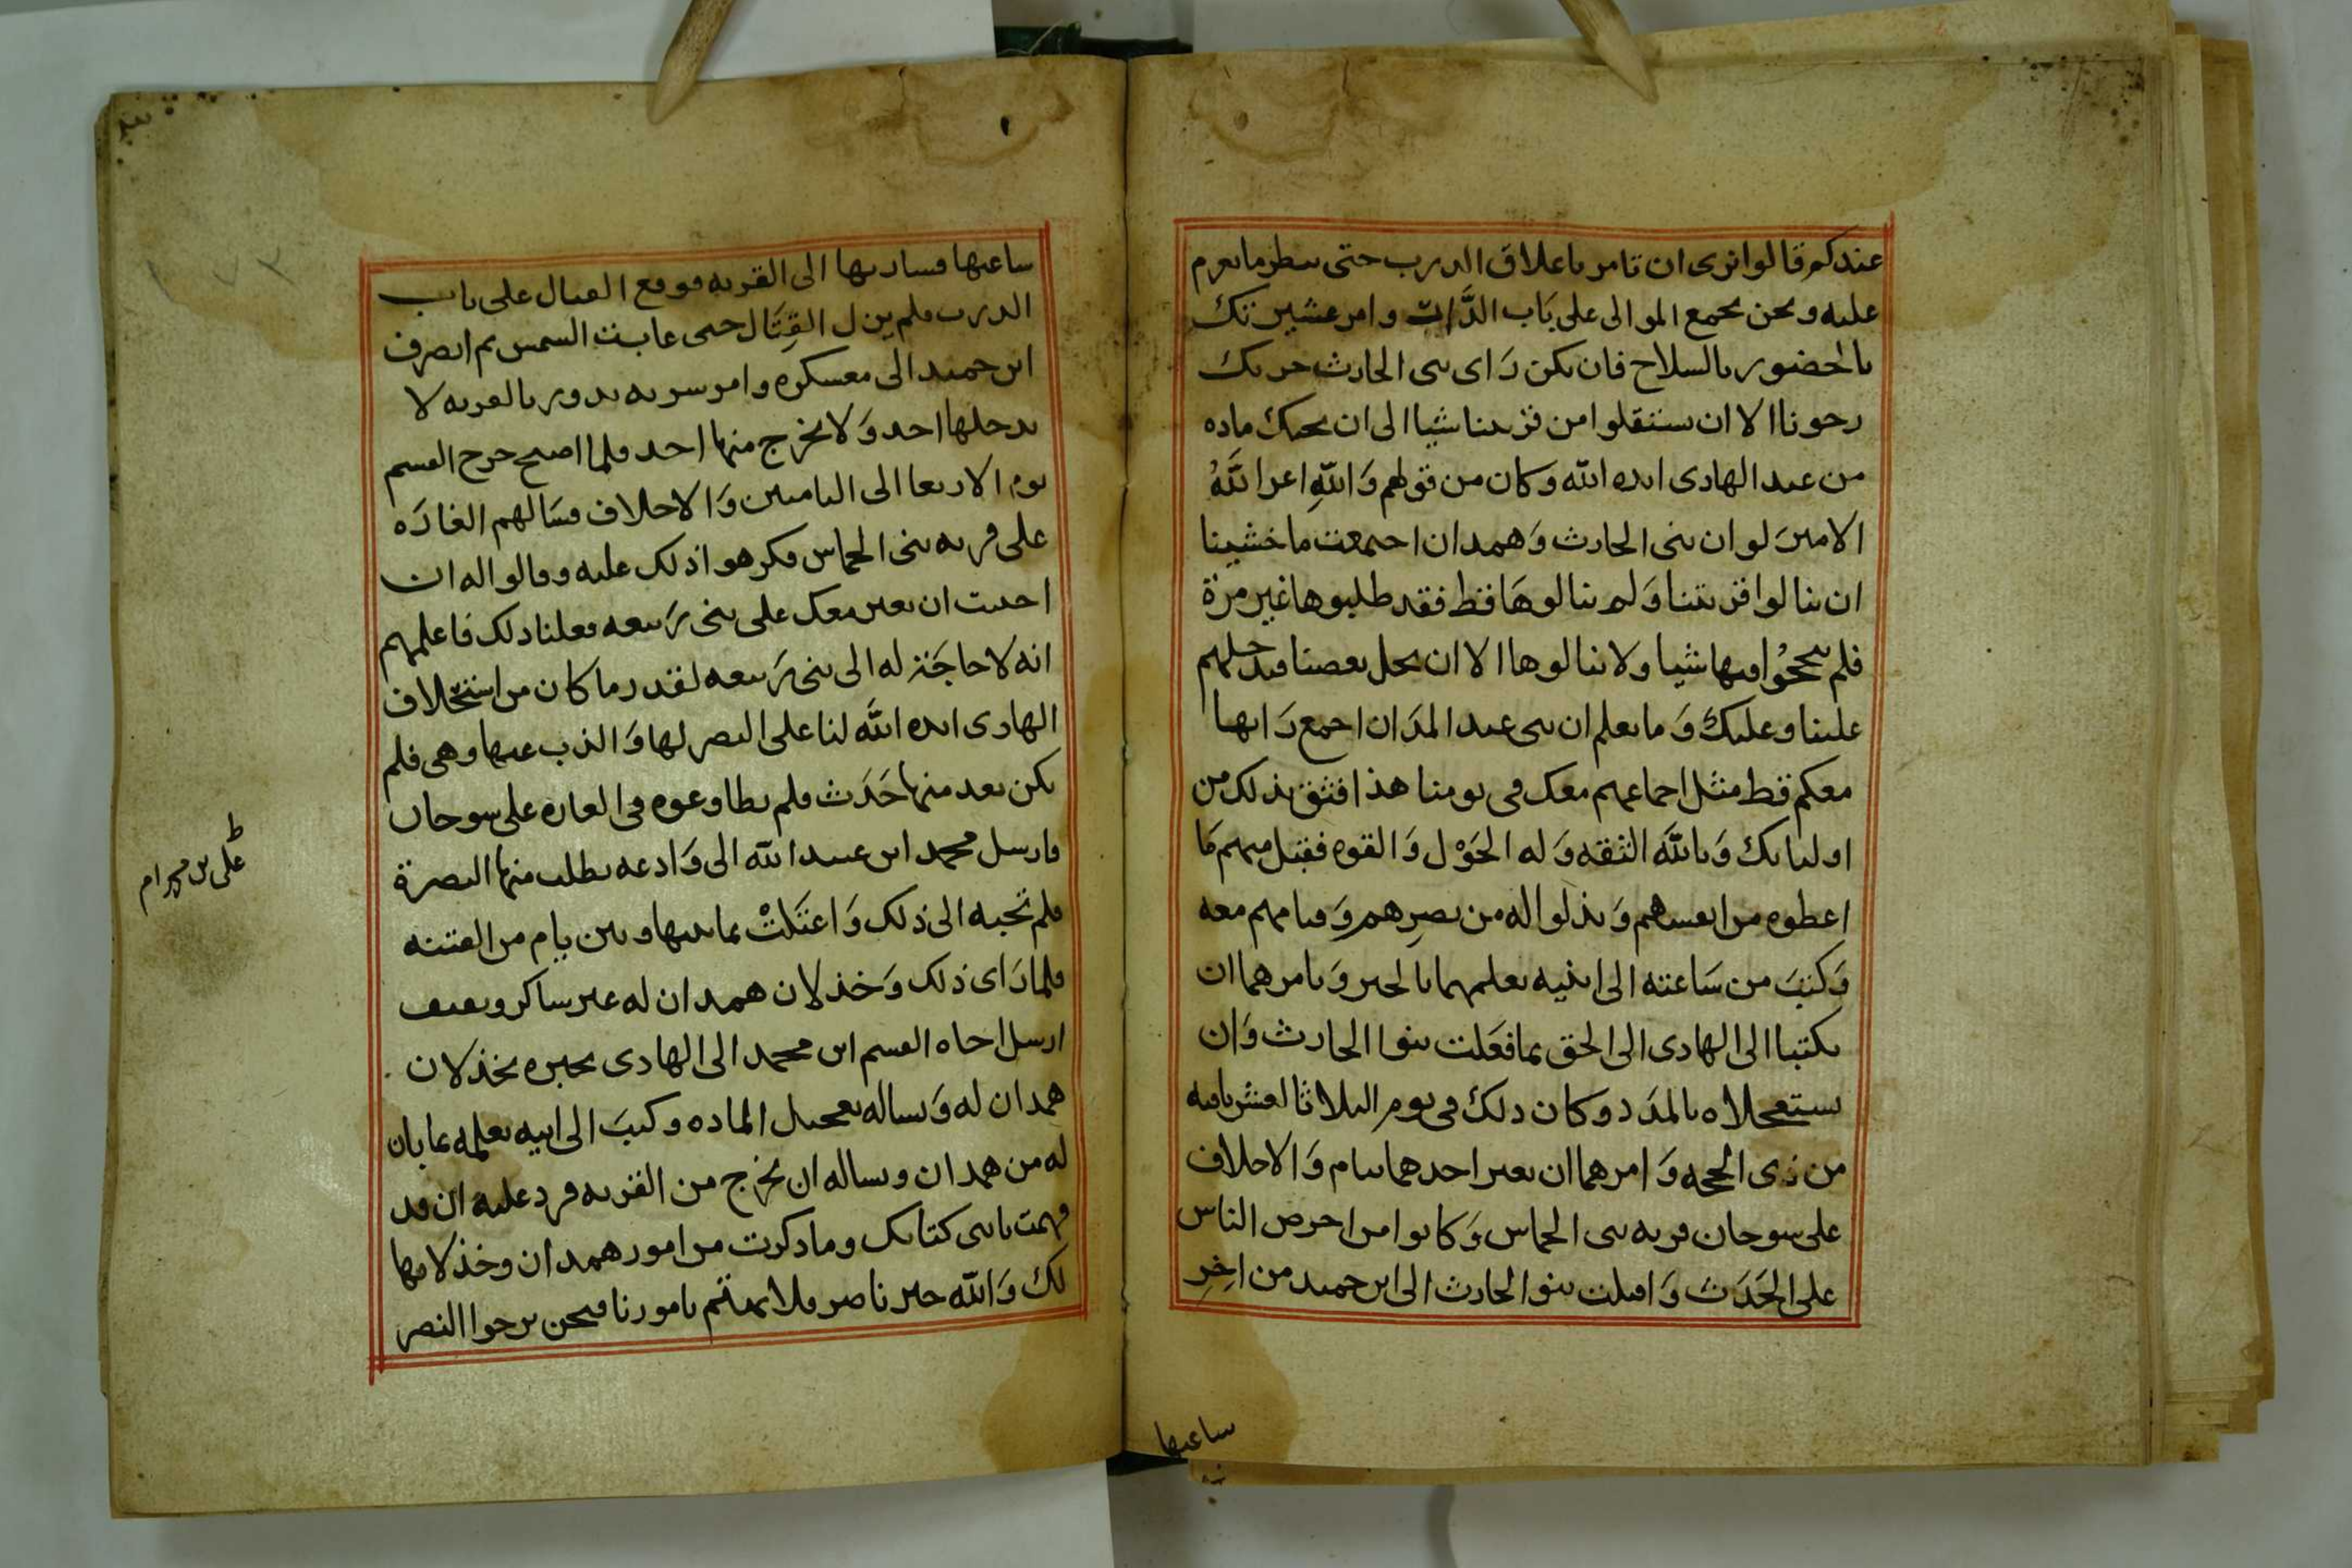 عندكم قالوا نرى ان تامر باغلاق الدرب حتى ننظر ما نعزم
عليه ونحن نجمع الموالى على باب الدَّرب وامر عشيرتك
بالحضور بالسلاح فان يكن رَاى بنى الحارث حربك
رجونا الا ان ستنقلوا من قريتنا شيا الى ان يجيك ماده
من عند الهادى ايده الله وَكان من قولهم وَاللهِ اعز اللَّهُ
الامينَ لو ان بنى الحارث وَهمدان اجتمعت ما خشينا
ان ينالوا قريتنا وَلم ينالوهَا قط فقد طلبوها غير مرة
فلم ينجحُوا فيها شيا ولا ينالوها الا ان يحل بعضنا فيدخلهم
علينا وعليك وَما نعلم ان بنى عبد المدَان اجمع رَايها
معكم قط مثل اجماعهم معك فى يومنا هذا فثق بذلك من
اوليايك وَبالله الثقه وَله الحَوْل وَالقوه فقبل منهم مَا
اعطوه من انفسهم وَبذلوا له من نصرِهم وَقيامهم معه
وَكتبَ من سَاعته الى ابنيه يعلمهما بالخبر وَيامرهما ان
يكتبا الى الهادى الى الحق بما فعَلت بنوا الحارث وَان
يستعجلاه بالمدَد وكان ذلك فى يوم الثلاثا لعشر باقيه
من ذى الحجه وَامرهما ان يعير احدهما بيام وَالاحلاف
على سوحان قريه بنى الحماس وَكانوا من احرص الناس
على الحَدَث وَاقبلت بنوا الحارث الى ابن حميد من اخِرِ
ساعتها
ساعتها فسار بها الى القريه فوقع القتال على باب
الدرب فلم يزل القِتَال حتى غابت الشمس ثم انصرف
ابن حميد الى معسكره وامر سريه تدور بالقريه لا
يدخلها احد وَلا يخرج منها احد فلما اصبح خرج القسم
يوم الاربعا الى اليامين وَالاحلاف فسَالهم الغارَه
على قريه بنى الحماس فكرهوا ذلك عليه وقالوا له ان
احببت ان نعير معك على بنى ربيعه فعلنا ذلك فاعلمهم
انه لا حاجَة له الى بنى رَبيعه لقدر ما كان من استخلاف
الهادى ايده اللَّه لنا على النصر لها وَالذب عنها وهى فلم
يكن بعد منها حَدَث فلم يطاوعوه فى الغاره على سوحان
فارسل محمد ابن عبيد الله الى وَادعه يطلب منها النصرة
فلم تجبه الى ذلك وَاعتَلتْ بما بينها وبين يام من الفتنه
فلما رَاى ذلك وَخذلان همدان له عير ساكر وبعيف
ارسل اخاه القسم ابن محمد الى الهادى يخبره بخذلان
همدان له وَيساله تعجيل الماده وكتبَ الى ابيه يعلمه بما بان
له من همدان ويساله ان يخرج من القريه فرد عليه ان قد
فهمت يابنى كتابك وما ذكرت من امور همدان وخذلانها
لك وَالله خير ناصر فلا تهتم بامورنا فنحن نرجوا النصر